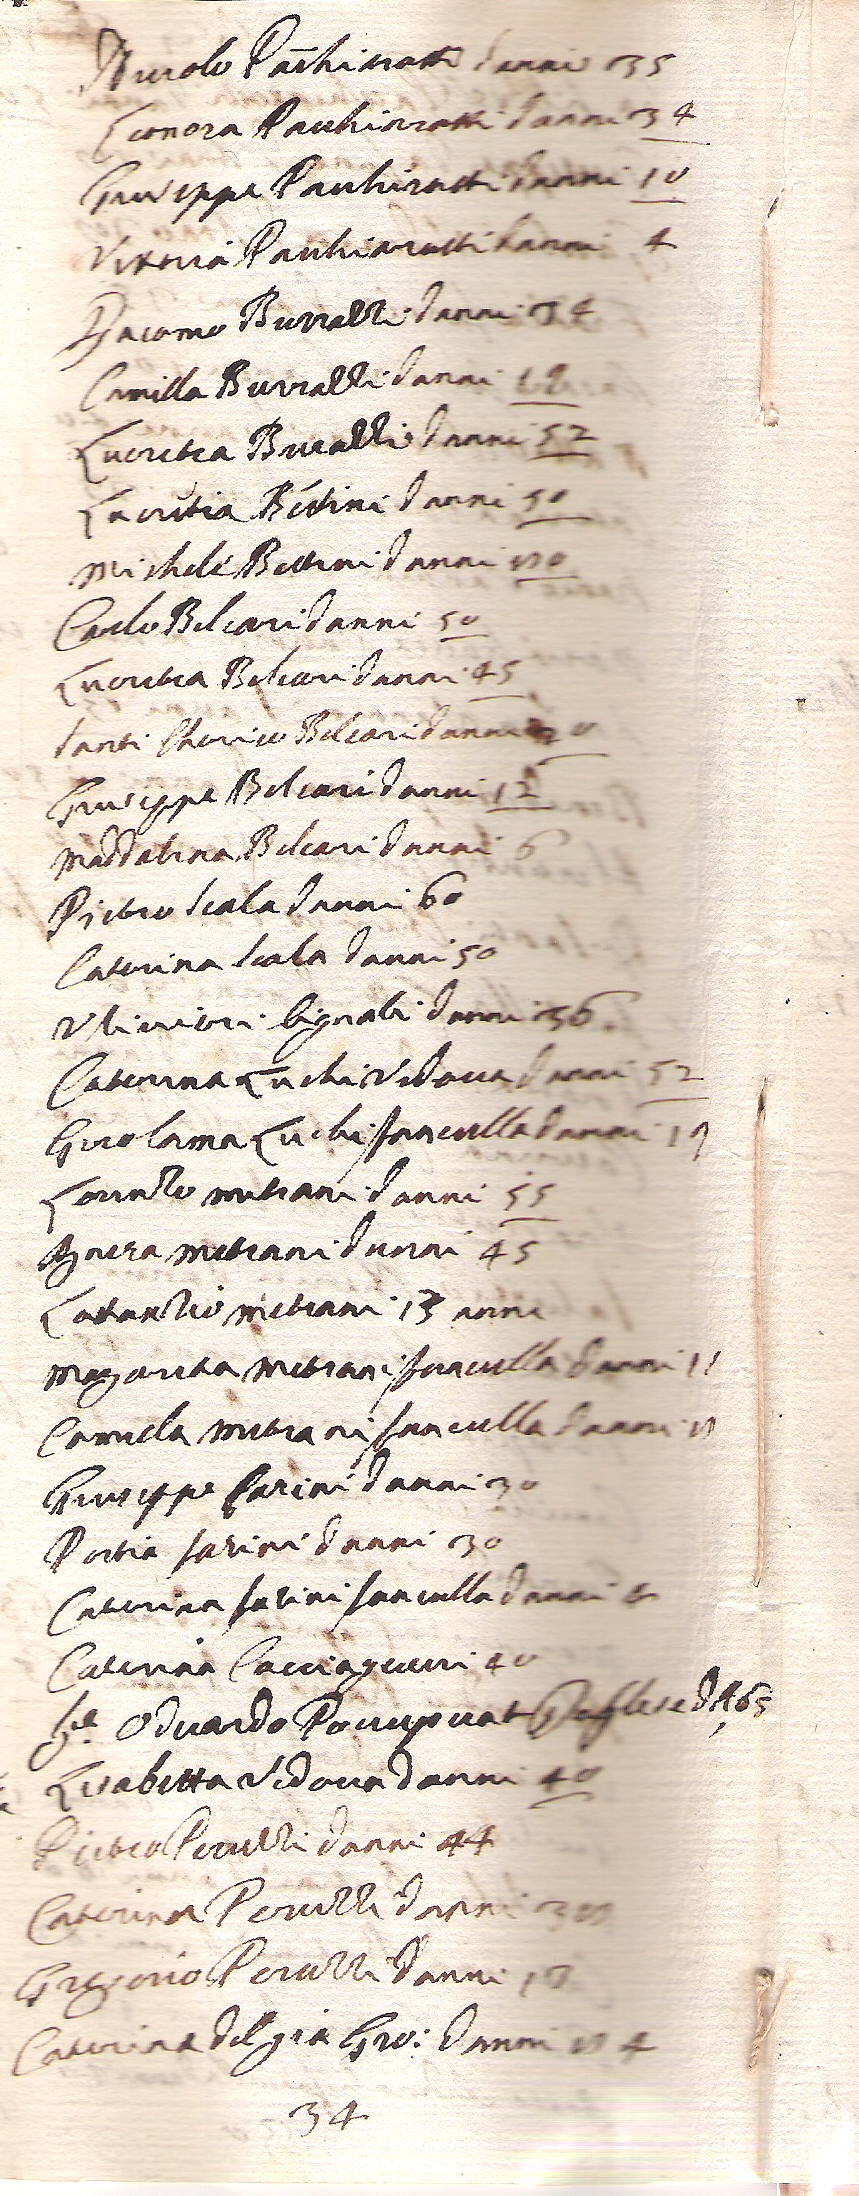 Nicolo Pachirotti d'anni 35
Leonora Pachiarotti d'anni 34
Giuseppe Pachirotti d'anni 10
Vittoria Pachiarotti d'anni 4
Giacomo Burralli d'anni 34
Camilla Burralli d'anni 19
Lucretia Buralli d'anni 52
Lucretia Bettini d'anni 50
Michele Bettini d'anni
Carlo Belcari d'anni 50
Lucretia Belcari d'anni 45
Santi Belcari d'anni
Giuseppe Belcari d'anni 12
Maddalena Belcari d'anni 6
Pietro Scala d'anni 60
Caterina Scala d'anni 50
Ulivieri d'anni 36
Caterina Luchi Vedova d'anni 52
Girolama Luchi fanculla d'anni 19
Lorenzo Metiani d'anni 55
Agnesa Metiani d'anni 45
Lattanzio Metiani 13 anni
Magarita Metiani fanculla d'anni 11
Camila Metiani fanculla d'anni
Giuseppe Sarini d'anni 30
Portia Sarini d'anni 30
Caterina Sarini fanculla d'anni
Caterina Cacciaguerri 40
Oduardo 65
Lisabetta Vedova d'anni 40
Pietro Peruzzi d'anni 44
Caterina Peruzzi d'anni
Gregorio Peruzzi d'anni
Caterina del già Gio: d'anni
34